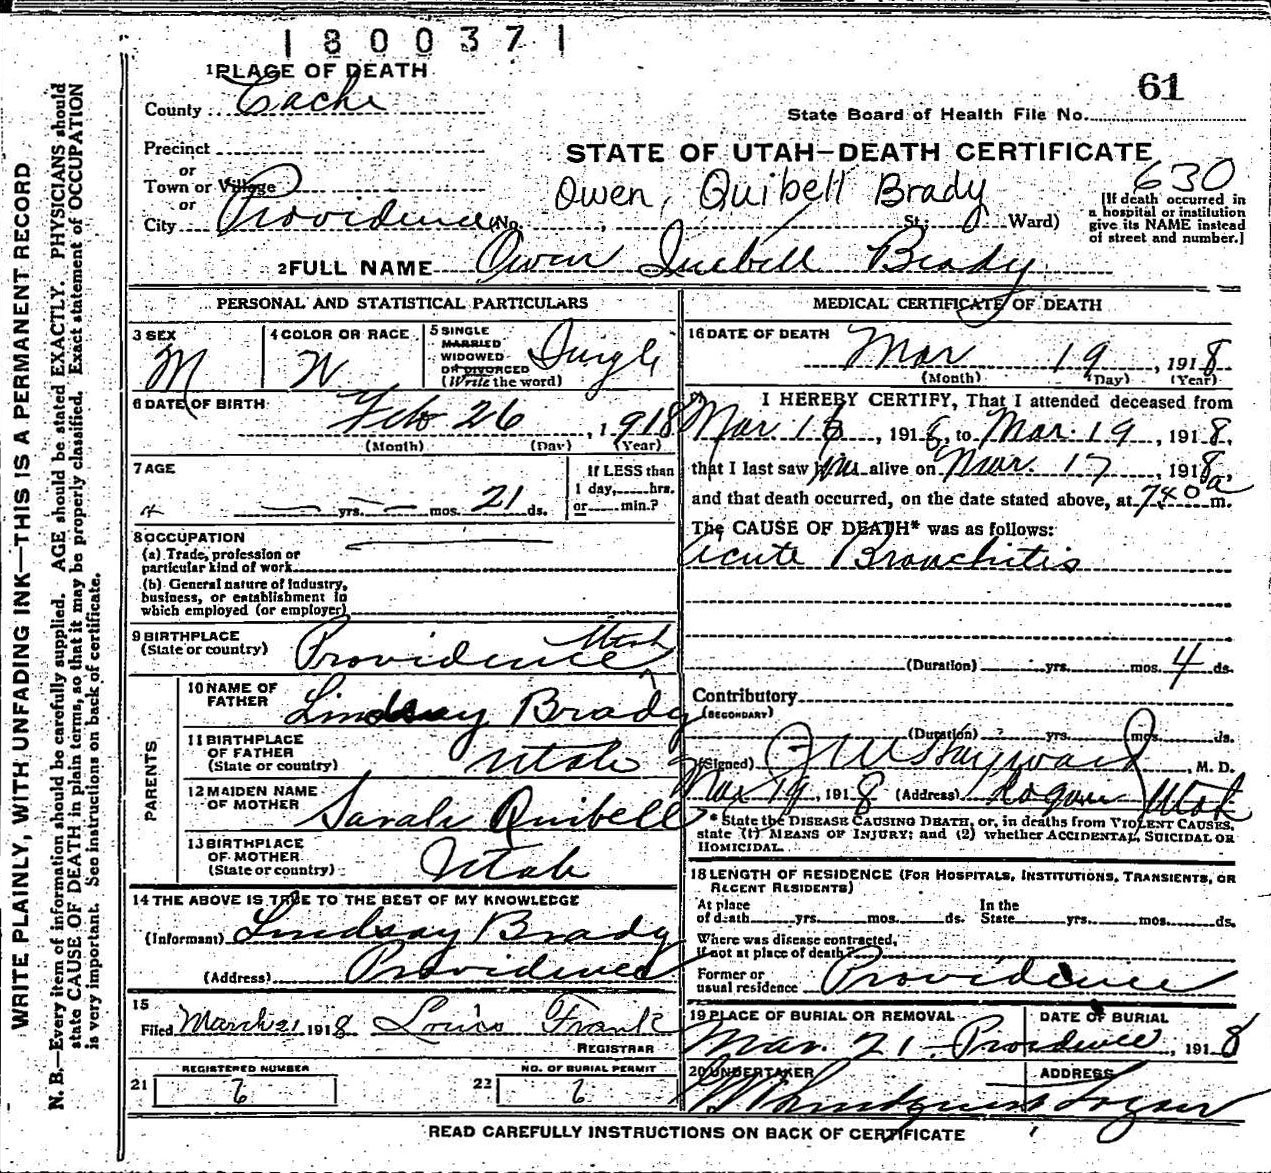 1800371
61
State Board of Health File No.
1 PLACE OF DEATH
County Cache
Precinct
or
Town or Village
or
City Providence (No. St.; Ward)
STATE OF UTAH—DEATH CERTIFICATE
630
Owen, Quibell Brady
[If death occurred in
a hospital or institution
give its NAME instead
of street and number.]
2 FULL NAME Owen Quibell Brady
WRITE PLAINLY, WITH UNFADING INK—THIS IS A PERMANENT RECORD
N. B.—Every item of information should be carefully supplied. AGE should be stated EXACTLY. PHYSICIANS should
state CAUSE OF DEATH in plain terms, so that it may be properly classified. Exact statement of OCCUPATION
is very important. See instructions on back of certificate.
PERSONAL AND STATISTICAL PARTICULARS
3 SEX
M
4 COLOR OR RACE
W
5 SINGLE
MARRIED
WIDOWED
OR DIVORCED
(Write the word)
Single
6 DATE OF BIRTH
Feb 26, 1918
(Month) (Day) (Year)
7 AGE
yrs. mos. 21 ds.
If LESS than
1 day, hrs.
or min.?
8 OCCUPATION
(a) Trade, profession or
particular kind of work
(b) General nature of industry,
business, or establishment in
which employed (or employer)
9 BIRTHPLACE
(State or country)
Providence Utah
PARENTS
10 NAME OF
FATHER
Lindsay Brady
11 BIRTHPLACE
OF FATHER
(State or country)
Utah
12 MAIDEN NAME
OF MOTHER
Sarah Quibell
13 BIRTHPLACE
OF MOTHER
(State or country)
Utah
14 THE ABOVE IS TRUE TO THE BEST OF MY KNOWLEDGE
(Informant) Lindsay Brady
(Address) Providence
15
Filed March 21 1918 Louis Frank
REGISTRAR
21 REGISTERED NUMBER
22 NO. OF BURIAL PERMIT
MEDICAL CERTIFICATE OF DEATH
16 DATE OF DEATH
Mar 19, 1918
(Month) (Day) (Year)
I HEREBY CERTIFY, That I attended deceased from
Mar 16, 1918, to Mar. 19, 1918,
that I last saw him alive on Mar. 17, 1918,
and that death occurred, on the date stated above, at 740 a m.
The CAUSE OF DEATH* was as follows:
Acute Bronchitis
(Duration) yrs. mos. 4 ds.
Contributory
(SECONDARY)
(Duration) yrs. mos. ds.
(Signed) J W Hayward, M. D.
Mar 19, 1918 (Address) Logan Utah
* State the DISEASE CAUSING DEATH, or, in deaths from VIOLENT CAUSES,
state (1) MEANS OF INJURY; and (2) whether ACCIDENTAL, SUICIDAL OR
HOMICIDAL.
18 LENGTH OF RESIDENCE (FOR HOSPITALS, INSTITUTIONS, TRANSIENTS, OR
RECENT RESIDENTS)
At place
of death yrs. mos. ds.
In the
State yrs. mos. ds.
Where was disease contracted,
if not at place of death?
Former or
usual residence Providence
19 PLACE OF BURIAL OR REMOVAL
DATE OF BURIAL
Mar. 21 Providence, 1918
20 UNDERTAKER
ADDRESS
Lindquist Logan
READ CAREFULLY INSTRUCTIONS ON BACK OF CERTIFICATE